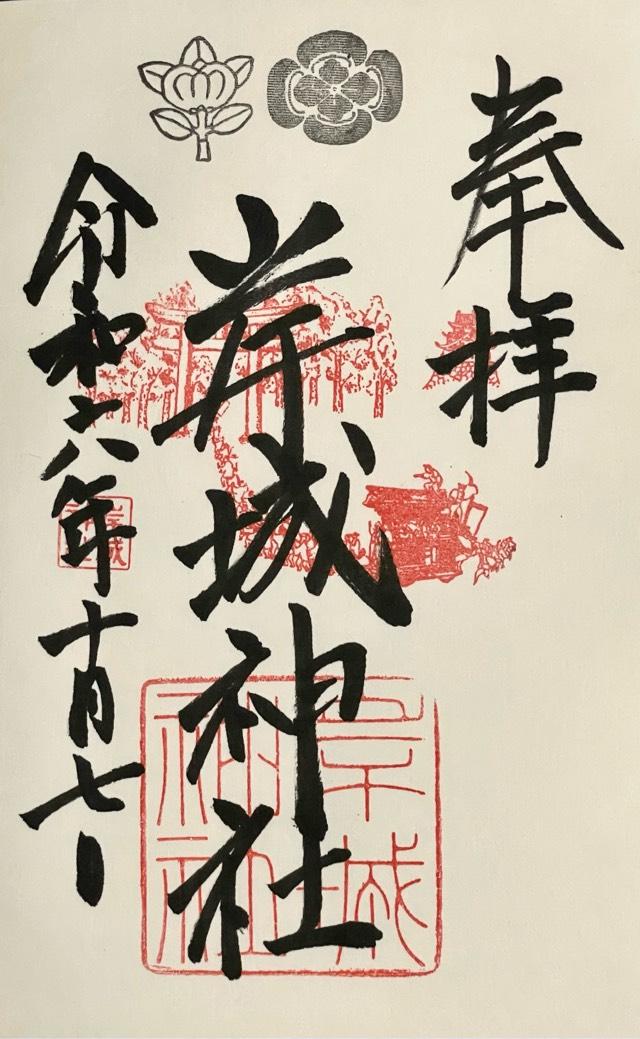 奉拝
岸城神社
令和六年十月七日
岸城
神社